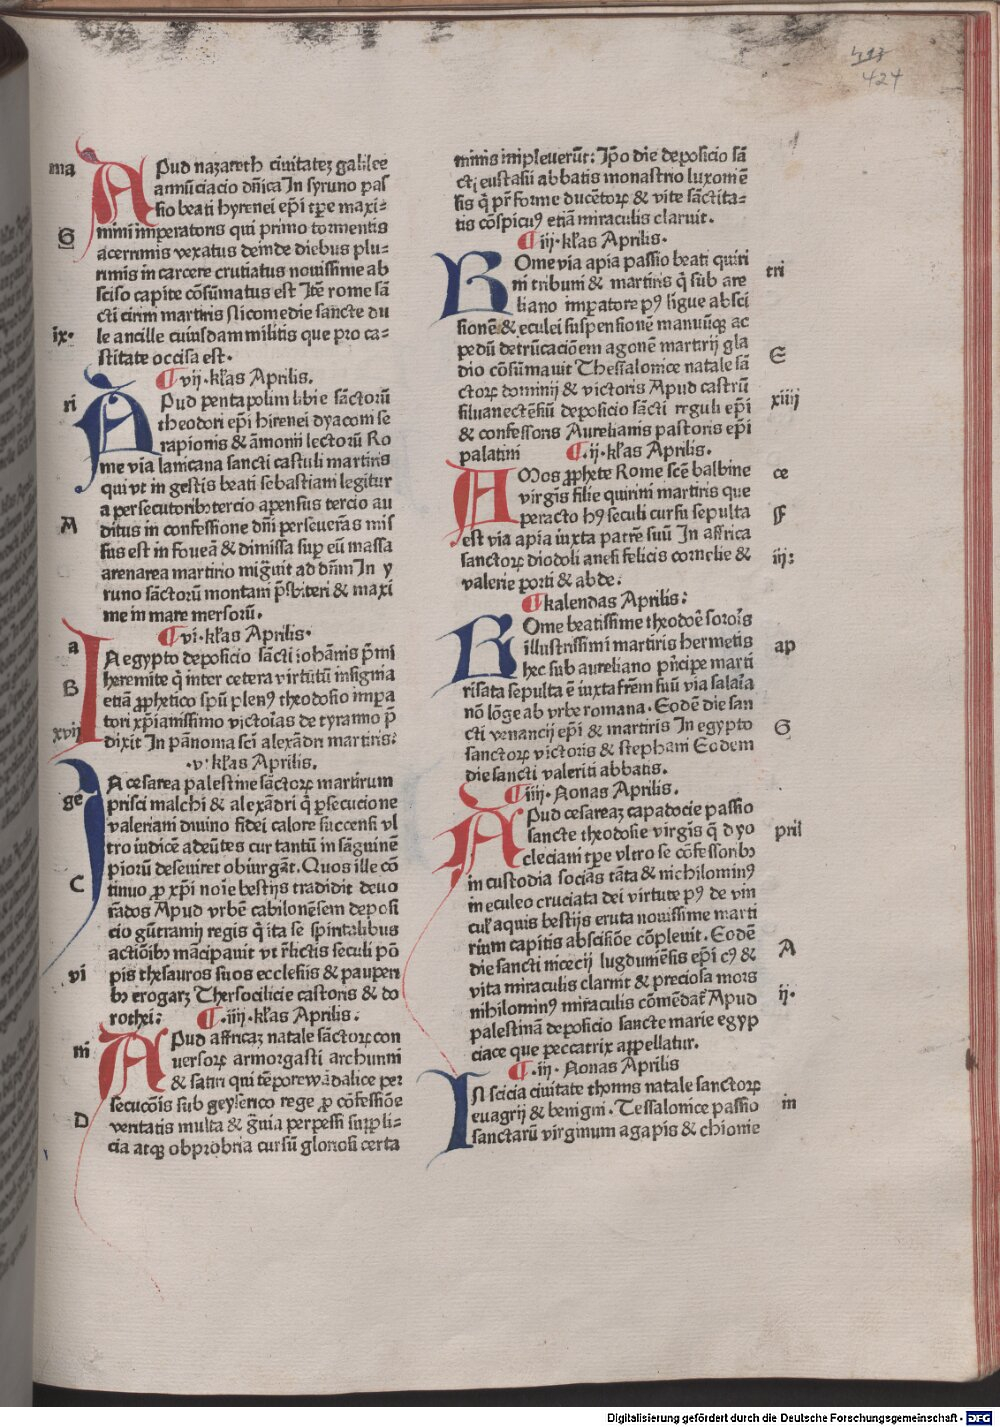 413
424
ma
APud nazareth ciuitatez galilee
annūciacio dn̄ica In syruno pas
sio beati hyrenei ep̄i tp̄e maxi-
mini imperatoris qui primo tormentis
G
acerrimis vexatus deinde diebus plu-
rimis in carcere crutiatus nouissime ab
sciso capite cōsūmatus est Itē rome sā
cti cirini martiris Nicomedie sancte du
ix.
le ancille cuiusdam militis que pro ca-
stitate occisa est.
¶ vij.kl̄as Aprilis.
ri
APud pentapolim libie sāctorū
theodori ep̄i hirenei dyaconi se
rapionis & āmonij lectorū Ro
me via lauicana sancti castuli martiris
qui vt in gestis beati sebastiani legitur
a persecutoribꝫ tercio apensus tercio au
A
ditus in confessione dn̄i perseuerās mis
sus est in foueā & dimissa sup̄ eū massa
arenarea martirio mig̈uit ad dn̄m In y
runo sāctorū montani p̄sbiteri & maxi
me in mare mersorū.
¶ vi.kl̄as Aprilis.
a
IN egypto deposicio sācti iohānis p̄mi
heremite q̄ inter cetera virtutū insignia
B
etiā ꝓphetico spū plenꝰ theodosio imp̄a
tori xp̄ianissimo victoīas de tyranno p̄
xvij
dixit In pānoma scī alexādri martiris:
.v.kl̄as Aprilis.
ge
IN cesarea palestine sāctoꝝ martirum
prisci malchi & alexādri q̄ p̄secucione
valeriani diuino fidei calore succensi vl
tro iudicē adeūtes cur tantū in sāguinē
piorū deseuiret obiurgāt. Quos ille cō
C
tinuo ꝓ xp̄i noīe bestijs tradidit deuo
rādos Apud vrbē cabilonēsem deposi
cio gūtramij regis q̄ ita se spiritalibus
actiōibꝫ mācipauit vt r̄lictis seculi pō
vi
pis thesauros suos ecclesiis & pauperi
bꝫ erogarꝫ Thersocilicie castoris & do
rothei:
¶ .iiij.kl̄as Aprilis.
ni
APud affricaꝫ natale sāctoꝝ con
uersoꝝ armorgasti archunni
& satiri qui tēpore wādalice per
secucōis sub geyserico rege ꝓ cōfessiōe
D
veritatis multa & g̈uia perpessi supplī-
cia atqꝫ obprobria cursū gloriosi certa
minis impleuerūt: Ip̄o die deposicio sā
cti eustasii abbatis monastrio luxouiē
sis q̄ pr̄ forme ducētoꝝ & vite sāctita-
tis cōspicuꝰ etiā miraculis claruit.
¶ iij.kl̄as Aprilis.
ROme via apia passio beati quiri
tri
ni tribuni & martiris q̄ sub are
liano imp̄atore pꝰ ligue absci
sionē & eculei suspensionē manuūqꝫ ac
pedū detrūcaciōem agonē martirij gla
E
dio cōsūmauit Thessalonice natale sā
ctoꝝ dominij & victoris Apud castrū
xiiij
siluanectēsiū deposicio sācti reguli ep̄i
& confessoris Aurelianis pastoris ep̄i
palatini
¶ .ij.kl̄as Aprilis.
AMos ꝓphete Rome scē balbine
ce
virgīs filie quirini martiris que
peracto hꝰ seculi cursu sepulta
ff
est via apia iuxta patrē suū In affrica
sanctoꝝ diodoli anesi felicis cornelie &
iij:
valerie porti & abde.
¶ kalendas Aprilis:
ROme beatissime theodoē soroīs
illustrissimi martiris hermetis
ap
hec sub aureliano p̄ncipe marti
risata sepulta ē iuxta fr̄em suū via salaīa
nō lōge ab vrbe romana. Eodē die san
cti venancij ep̄i & martiris In egypto
G
sanctoꝝ victoris & stephani Eodem
die sancti valeriti abbatis.
¶ iiij. Nonas Aprilis.
APud cesareaꝫ capadocie passio
pril
sancte theodosie virgīs q̄ dyo
cleciani tp̄e vltro se cōfessoribꝫ
in custodia sociās tāta & nichilominꝰ
in eculeo cruciata dei virtute pꝰ de vin
culꝭ aquis bestijs eruta nouissime marti
rium capitis abscisiōe cōpleuit. Eodē
A
die sancti nicecij lugdunēsis ep̄i cꝰ &
vita miraculis claruit & preciosa mors
ij.
nihilominꝰ miraculis cōmēdat̄ Apud
palestinā deposicio sancte marie egyp
ciace que peccatrix appellatur.
¶ .iij. Nonas Aprilis
IN scicia ciuitate thomis natale sanctoꝝ
in
euagrij & benigni. Tessalonice passio
sanctarū virginum agapis & chionie
Digitalisierung gefördert durch die Deutsche Forschungsgemeinschaft - DFG